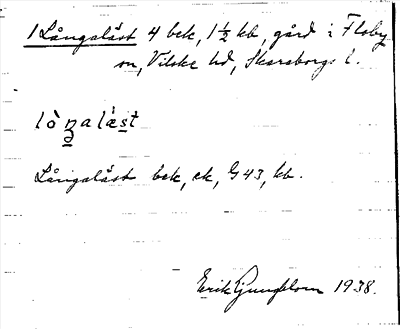 1 Långaläst 4 bek, 1½ kb, gård i Floby
sn, Vilske hd, Skaraborgs l.
lòŋalä̀st
Långaläst bek, ek, G 43, kb.
Erik Ljungblom 1938.